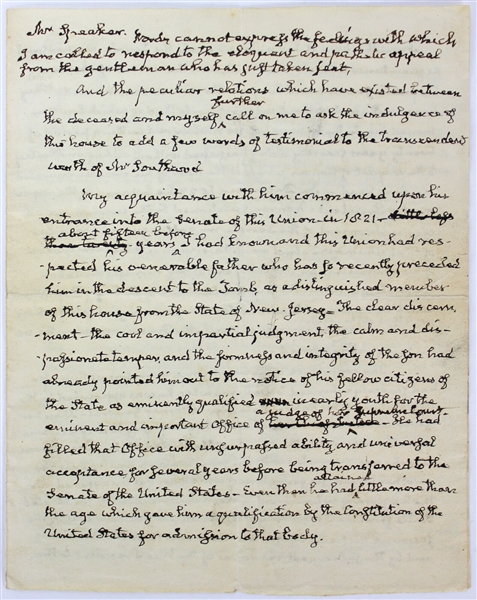 Mr Speaker. Words cannot express the feelings with which
I am called to respond to the eloquent and pathetic appeal
from the gentleman who has just taken seat,
And the peculiar relations which have existed between
further
the deceased and myself, call on me to ask the indulgence of
this house to add a few words of testimonial to the transcendent
worth of Mr Southard
My acquaintance with him commenced upon his
entrance into the Senate of this Union in 1821 - little less
about fifteen before
than twenty years I had known and this Union had res-
-pected his venerable father who has so recently preceded
him in the descent to the Tomb, as a distinguished member
of this house from the State of New-Jersey - The clear discern-
-ment - the cool and impartial judgment, the calm and dis-
-passionate temper, and the firmness and integrity of the son had
already pointed him out to the notice of his fellow citizens of
the State as eminently qualified even in early youth for the
a Judge of her Supreme Court -
eminent and important Office of - He had
filled that Office with unsurpassed ability and universal
acceptance for several years before being transferred to the
attained
Senate of the United States - Even then he had little more than
the age which gave him a qualification by the Constitution of the
United States for admission to that body.